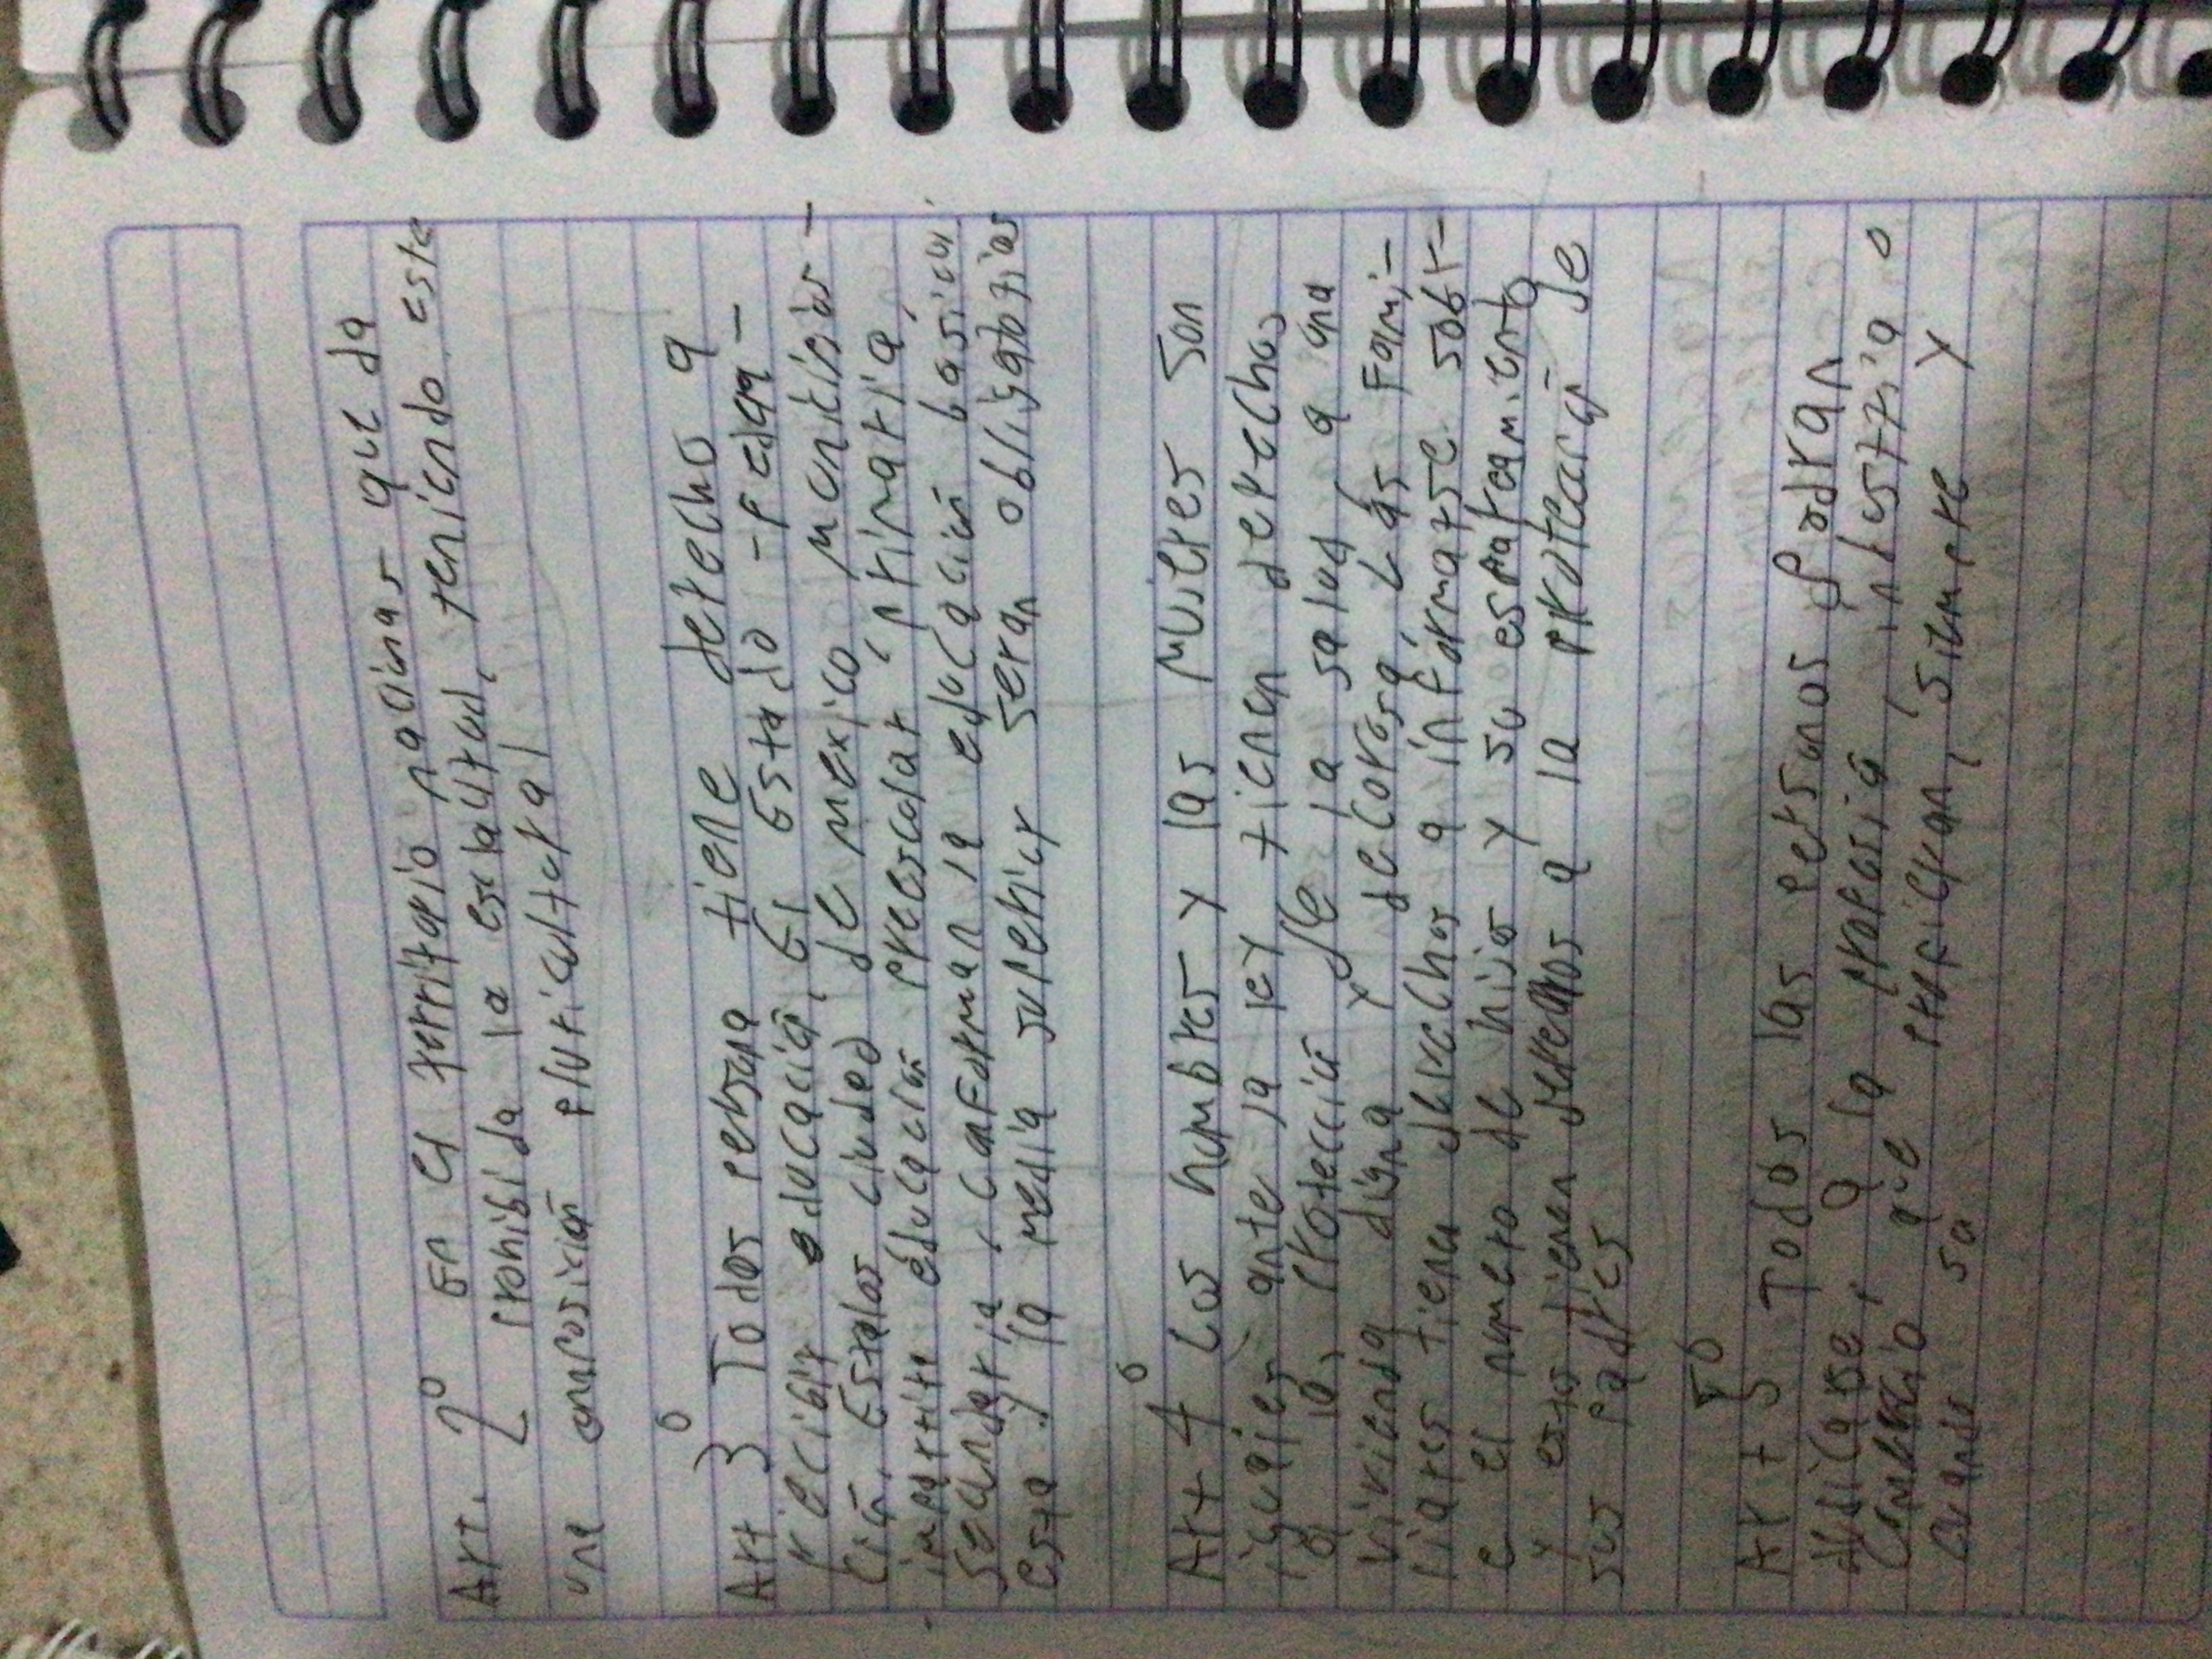 Art. 2º En el territorio nacionas que da
prohibida la esclautud, teniendo este
une composición pluricultural
Art 3º Todos persona tiene derecho a
recibir educación, El Estado -Federa-
ción, Estados ciuded de mexico municipios-
impartira educación preescolar, primaria,
secundaria, conforman la educación basica,
esta y la media superior seran obligatorias
Art 4º Los hombres y las mujeres son
iguales ante la ley tienen derechos
a la, protección de la salud, a una
vivienda digna y decorosa, Las Fami-
liares tiene derechos a informarse sobr-
e el numero de hijos y su espateamiento
y estos tienen derechos a la proteación de
sus padres
Art 5º Todos las personos podran
dedicarse, a la profesió, industria o
Comercio que prefieran, siempre y
cuando su